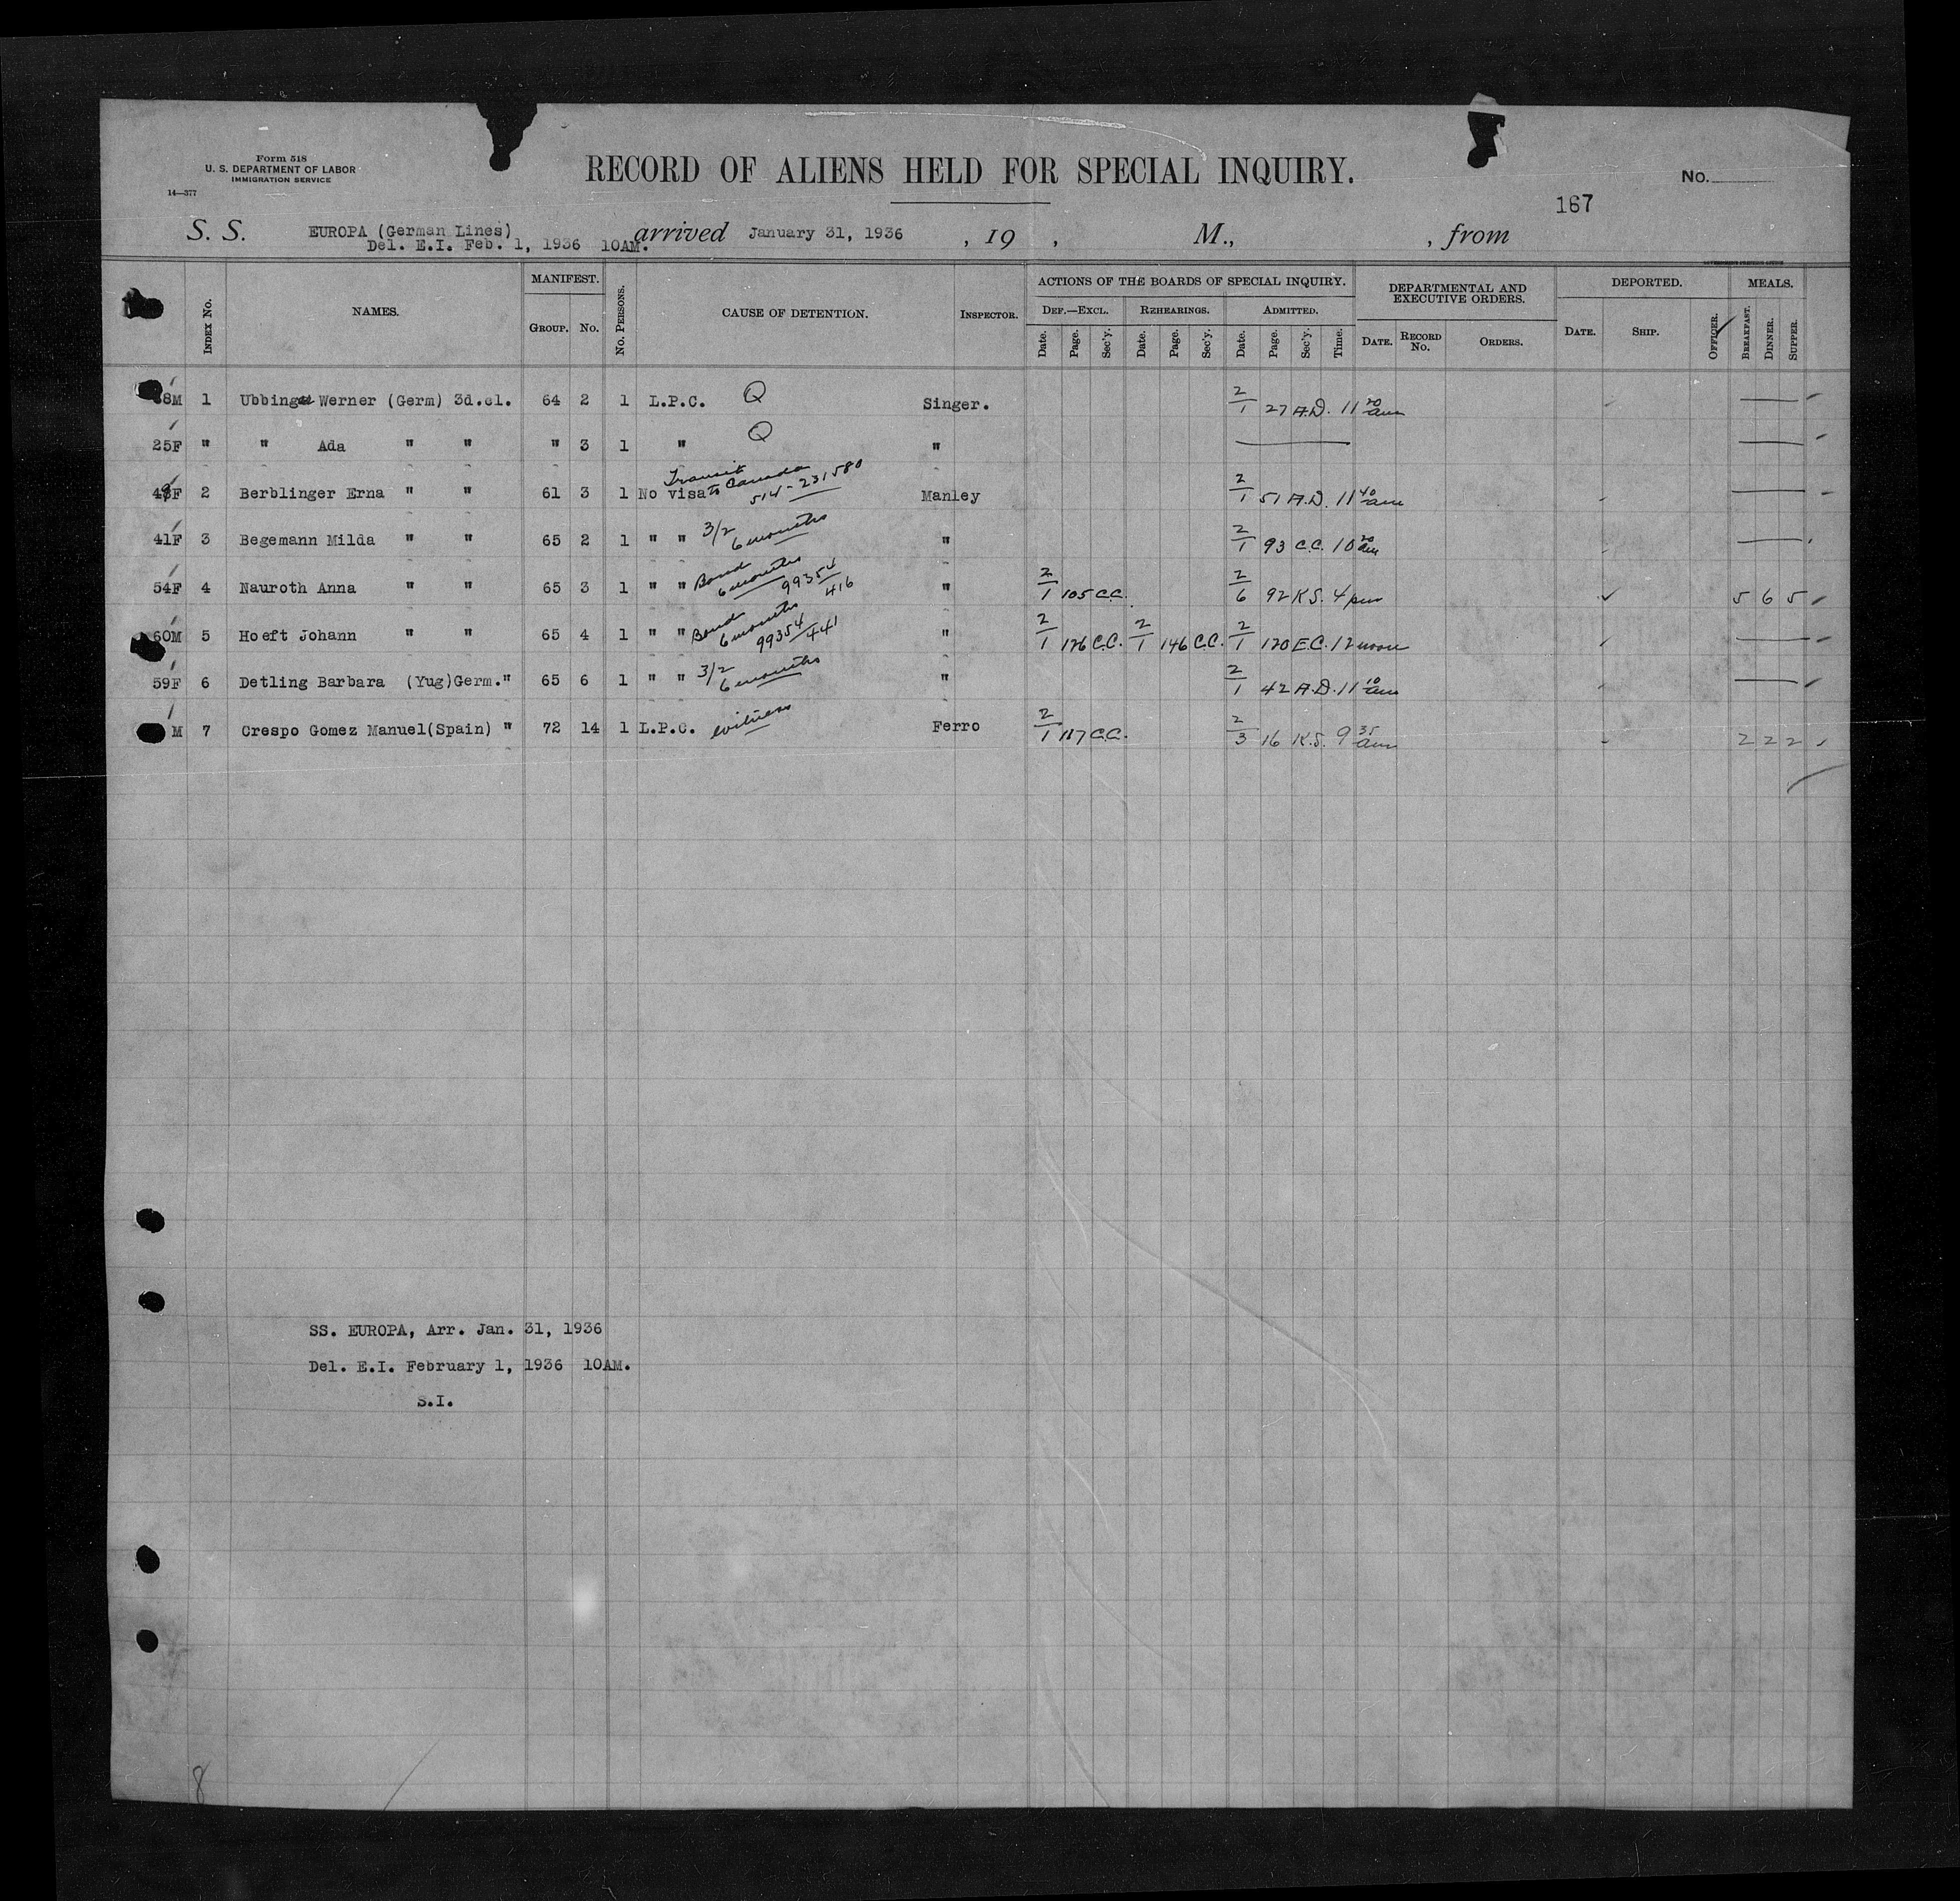 Form 518
U. S. DEPARTMENT OF LABOR
IMMIGRATION SERVICE
14—377
RECORD OF ALIENS HELD FOR SPECIAL INQUIRY.
No.
167
S. S. EUROPA (German Lines) arrived January 31, 1936 , 19 , M., , from
Del. E.I. Feb. 1, 1936 10AM.
INDEX No. NAMES. MANIFEST. GROUP. No. No. PERSONS. CAUSE OF DETENTION. INSPECTOR. ACTIONS OF THE BOARDS OF SPECIAL INQUIRY. DEPARTMENTAL AND EXECUTIVE ORDERS. DEPORTED. MEALS.
DEF.—EXCL. REHEARINGS. ADMITTED.
Date. Page. Sec'y. Date. Page. Sec'y. Date. Page. Sec'y. Time. DATE. RECORD No. ORDERS. DATE. SHIP. OFFICER. BREAKFAST. DINNER. SUPPER.
8M 1 Ubbing Werner (Germ) 3d.cl. 64 2 1 L.P.C. Q Singer. 2/1 27 A.D. 11 20 am
25F " " Ada " " " 3 1 " Q "
F 2 Berblinger Erna " " 61 3 1 No visa Transit to Canada 514-231580 Manley 2/1 51 A.D. 11 40 am
41F 3 Begemann Milda " " 65 2 1 " " 3/2 6 months " 2/1 93 C.C. 10 20 am
54F 4 Nauroth Anna " " 65 3 1 " " Bond 6 months 99354/416 " 2/1 105 C.C. 2/6 92 K.S. 4 pm 5 6 5
60M 5 Hoeft Johann " " 65 4 1 " " Bond 6 months 99354/441 " 2/1 126 C.C. 2/1 146 C.C. 2/1 120 E.C. 12 noon
59F 6 Detling Barbara (Yug)Germ." 65 6 1 " " 3/2 6 months " 2/1 42 A.D. 11 10 am
M 7 Crespo Gomez Manuel(Spain) " 72 14 1 L.P.C. witness Ferro 2/1 117 C.C. 2/3 16 K.S. 9 35 am 2 2 2
SS. EUROPA, Arr. Jan. 31, 1936
Del. E.I. February 1, 1936 10AM.
S.I.
8